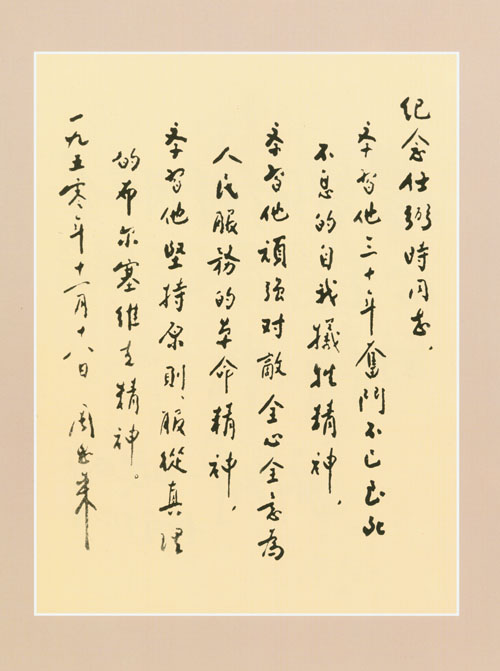 纪念任弼時同志，
学習他三十年奮鬥不已至死
不息的自我犧牲精神，
学習他頑強对敵全心全意為
人民服務的革命精神，
学習他堅持原則、服從真理
的布尔塞維克精神。
一九五零年十一月十八日 周恩来